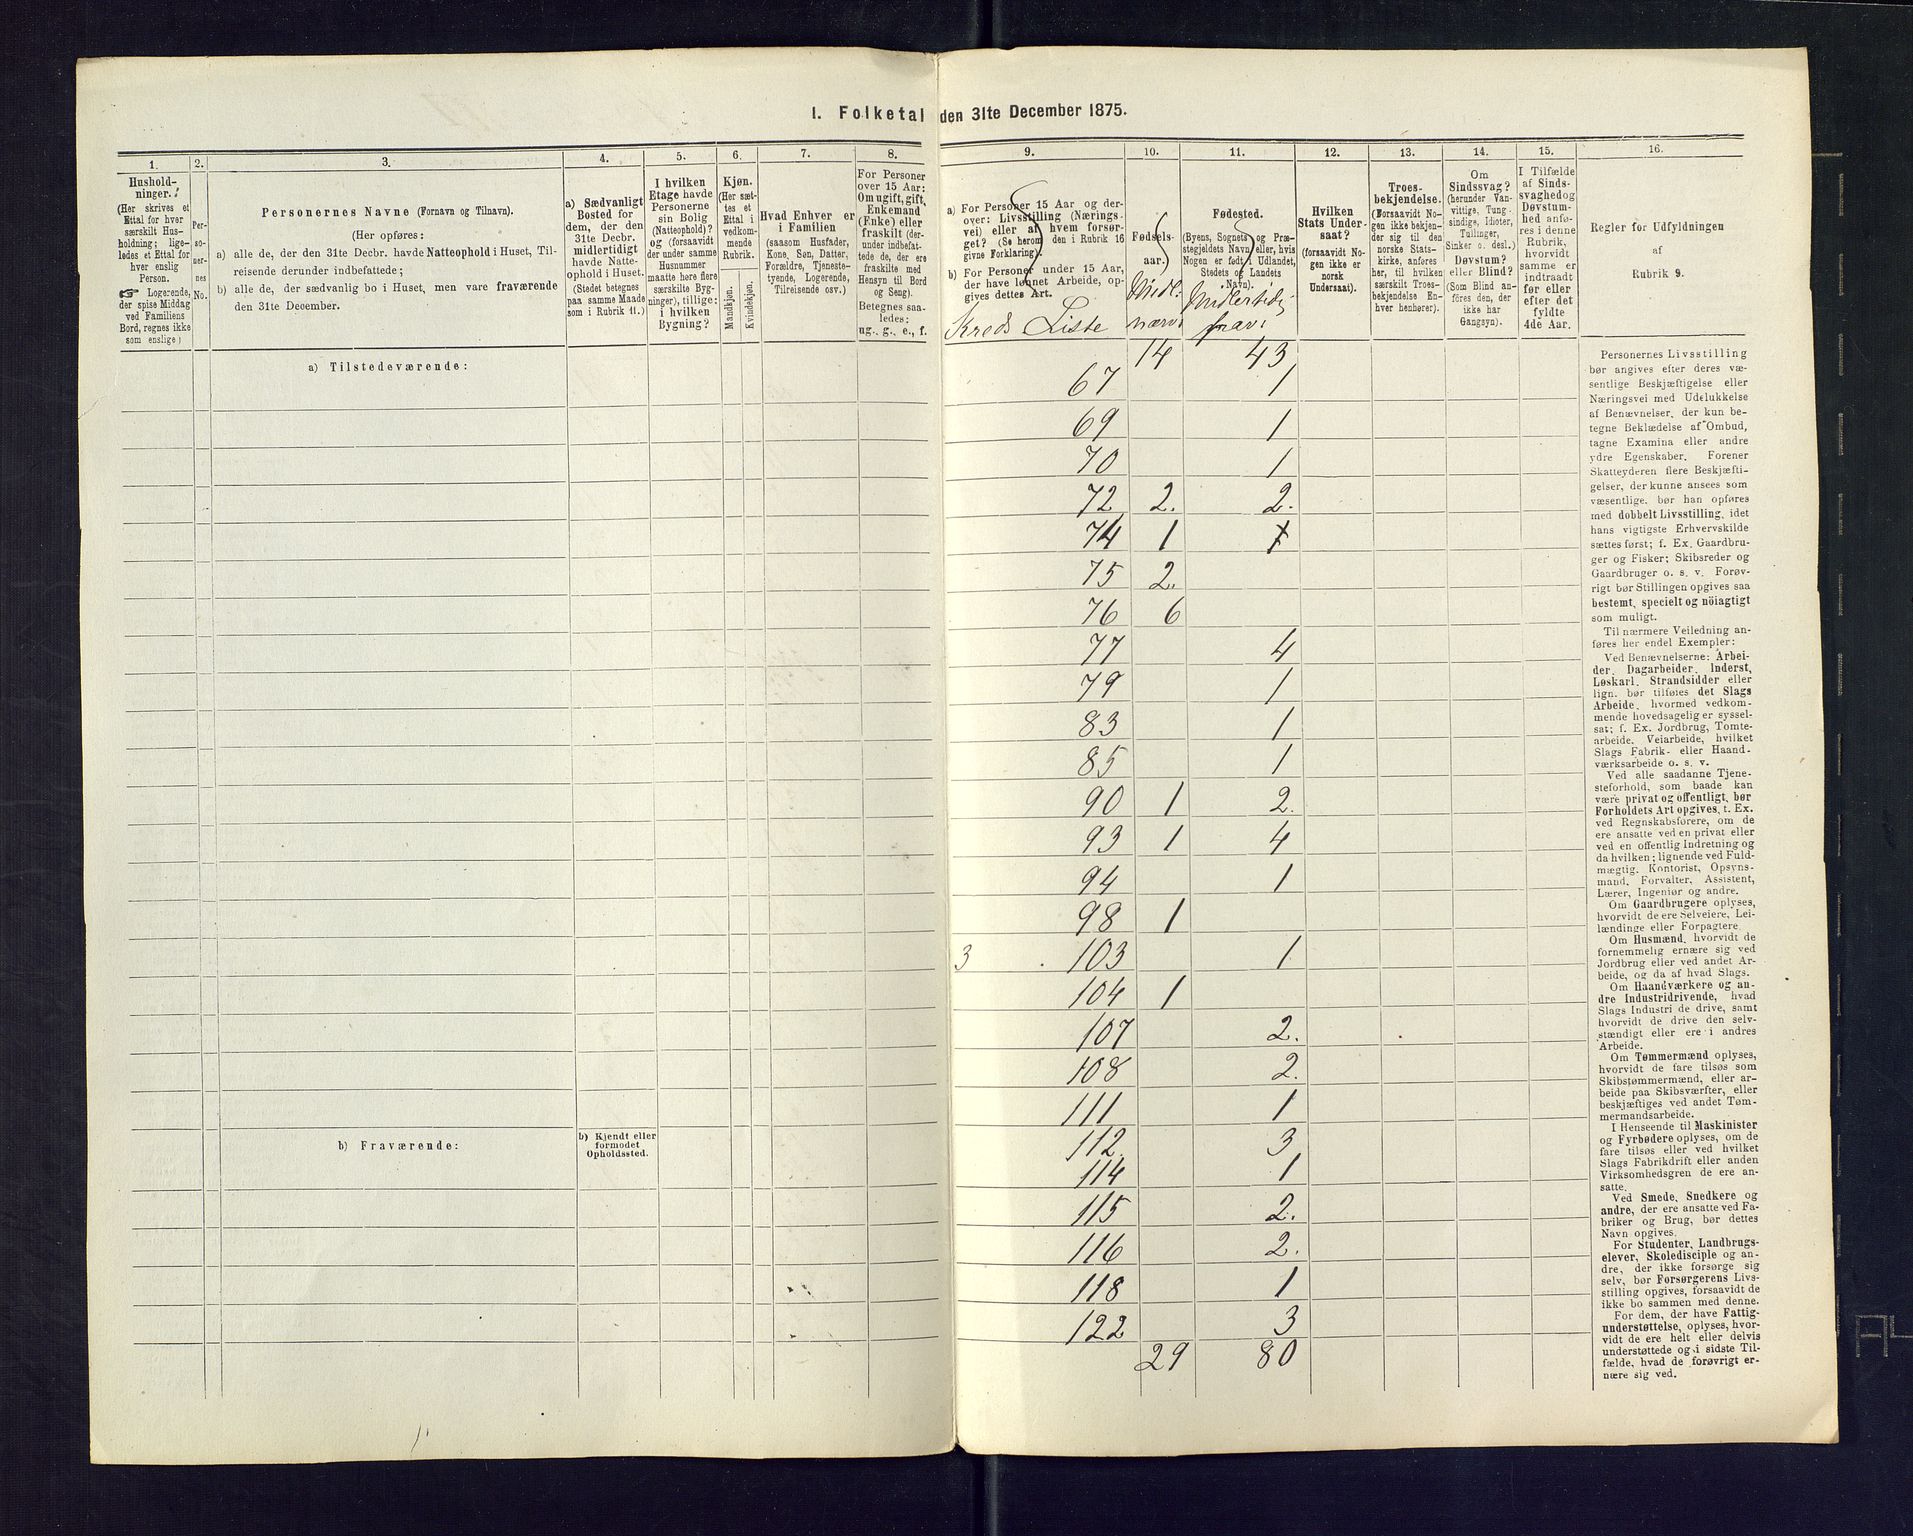 I. Folketal den 31te December 1875.
1.
Hushold-
ninger.
(Her skrives et
Ettal for hver
særskilt Hus-
holdning; lige-
ledes et Ettal for
hver enslig
Person.
☞ Logerende,
der spise Middag
ved Familiens
Bord, regnes ikke
som enslige)
2.
Per-
so-
ner-
nes
No.
3.
Personernes Navne (Fornavn og Tilnavn).
(Her opføres:
a) alle de, der den 31te Decbr. havde Natteophold i Huset, Til-
reisende derunder indbefattede;
b) alle de, der sædvanlig bo i Huset, men vare fraværende
den 31te December.
4.
a) Sædvanligt
Bosted for
dem, der den
31te Decbr.
midlertidigt
havde Natte-
ophold i Huset.
(Stedet betegnes
paa samme Maade
som i Rubrik 11.)
5.
I hvilken
Etage havde
Personerne
sin Bolig
(Natteophold)?
og (forsaavidt
der under samme
Husnummer
maatte høre flere
særskilte Byg-
ninger), tillige:
i hvilken
Bygning?
6.
Kjøn.
(Her sæt-
tes et
Ettal i
vedkom-
mende
Rubrik.
Mandkjøn.
Kvindekjøn.
7.
Hvad Enhver er
i Familien
(saasom Husfader,
Kone, Søn, Datter,
Forældre, Tjeneste-
tyende, Logerende,
Tilreisende osv.)
8.
For Personer
over 15 Aar:
Om ugift, gift,
Enkemand
(Enke) eller
fraskilt (der-
under indbefat-
tede de, der ere
fraskilte med
Hensyn til Bord
og Seng).
Betegnes saa-
ledes:
ug., g., e., f.
9.
a) For Personer 15 Aar og der-
over: Livsstilling (Nærings-
vei) eller af hvem forsør-
get? (Se herom den i Rubrik 16
givne Forklaring).
b) For Personer under 15 Aar,
der have lønnet Arbeide, op-
gives dettes Art.
Kreds Liste
10.
Fødsels-
aar.
Midl.
nærv.
11.
Fødested.
(Byens, Sognets og Præ-
stegjeldets Navn eller, hvis
Nogen er født i Udlandet,
Stedets og Landets
Navn).
Midlertidig
frav.
12.
Hvilken
Stats Under-
saat?
(forsaavidt No-
gen ikke er
norsk
Undersaat).
13.
Troes-
bekjendelse.
(Forsaavidt No-
gen ikke bekjen-
der sig til den
norske Stats-
kirke, anføres
her, til hvilken
særskilt Troes-
bekjendelse En-
hver henhører).
14.
Om
Sindssvag?
(herunder Van-
vittige, Tung-
sindige, Idioter,
Tullinger,
Sinker o. desl.)
Døvstum?
eller Blind?
(Som Blind an-
føres den, der
ikke har
Gangsyn).
15.
I Tilfælde
af Sinds-
svaghed og
Døvstum-
hed anfø-
res i denne
Rubrik,
hvorvidt
samme er
indtraadt
før eller
efter det
fyldte
4de Aar.
16.
Regler for Udfyldningen
af
Rubrik 9.
a) Tilstedeværende:
14 43
67 1
69 1
70 1
72 2. 2.
74 1
75 2.
76 6
77 4
79 1
83 1
85 1
90 1 2.
93 1 4
94 1
98 1
3 103 1
104 1
107 2.
108 2.
111 1
b) Fraværende:
b) Kjendt eller
formodet
Opholdssted.
112. 3
114 1
115 2.
116 2.
118 1
122 3
29 80
Personernes Livsstilling
bør angives efter deres væ-
sentlige Beskjæftigelse eller
Næringsvei med Udelukkelse
af Benævnelser, der kun be-
tegne Beklædelse af Ombud,
tagne Examina eller andre
ydre Egenskaber. Forener
Skatteyderen flere Beskjæfti-
gelser, der kunne ansees som
væsentlige, bør han opføres
med dobbelt Livsstilling, idet
hans vigtigste Erhvervskilde
sættes først; f. Ex. Gaardbru-
ger og Fisker; Skibsreder og
Gaardbruger o. s. v. Forøv-
rigt bør Stillingen opgives saa
bestemt, specielt og nöiagtigt
som muligt.
Til nærmere Veiledning an-
føres her endel Exempler:
Ved Benævnelserne: Arbei-
der, Dagarbeider, Inderst,
Løskarl, Strandsidder eller
lign. bør tilføies det Slags
Arbeide, hvormed vedkom-
mende hovedsagelig er syssel-
sat; f. Ex. Jordbrug, Tomte-
arbeide, Veiarbeide, hvilket
Slags Fabrik- eller Haand-
værksarbeide o. s. v.
Ved alle saadanne Tjene-
steforhold, som baade kan
være privat og offentligt, bør
Forholdets Art opgives, t. Ex.
ved Regnskabsførere, om de
ere ansatte ved en privat eller
ved en offentlig Indretning og
da hvilken; lignende ved Fuld-
mægtig, Kontorist, Opsyns-
mand, Forvalter, Assistent,
Lærer, Ingeniør og andre.
Om Gaardbrugere oplyses,
hvorvidt de ere Selveiere, Lei-
lændinge eller Forpagtere.
Om Husmænd, hvorvidt de
fornemmelig ernære sig ved
Jordbrug eller ved andet Ar-
beide, og da af hvad Slags.
Om Haandværkere og an-
dre Industridrivende, hvad
Slags Industri de drive, samt
hvorvidt de drive den selv-
stændigt eller ere i andres
Arbeide.
Om Tømmermænd oplyses,
hvorvidt de fare tilsøs som
Skibstømmermænd, eller ar-
beide paa Skibsværfter, eller
beskjæftiges ved andet Tøm-
mermandsarbeide.
I Henseende til Maskinister
og Fyrbødere oplyses, om de
fare tilsøs eller ved hvilket
Slags Fabrikdrift eller anden
Virksomhedsgren de ere an-
satte.
Ved Smede, Snedkere og
andre, der ere ansatte ved Fa-
briker og Brug, bør dettes
Navn opgives.
For Studenter, Landbrugs-
elever, Skoledisciple og an-
dre, der ikke forsørge sig
selv, bør Forsørgerens Livs-
stilling opgives, forsaavidt de
ikke bo sammen med denne.
For dem, der have Fattig-
understøttelse, oplyses, hvor-
vidt de ere helt eller delvis
understøttede og i sidste Til-
fælde, hvad de forøvrigt er-
nære sig ved.